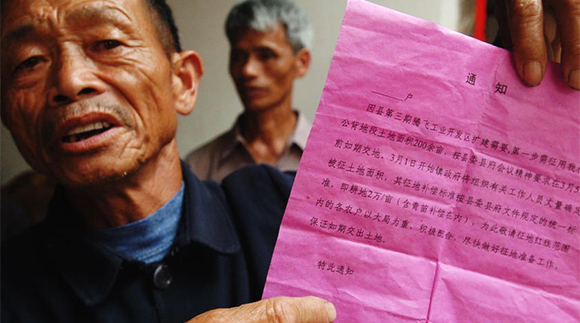 通知
户
因县第三期腾飞工业开发区扩建需要,第一步需征用我
公背地段土地面积200余亩,按县委县府会议精神要求在3月
前如期交地、3月1日开始镇政府将组织有关工作人员丈量确
被征土地面积。其征地补偿标准按县委县府文件规定的统一
准,即耕地2万/亩(含青苗补偿在内),为此敬请征地红线范围
内的各农户以大局为重,积极配合、尽快做好征地准备工作,
保证如期交出土地.
特此通知